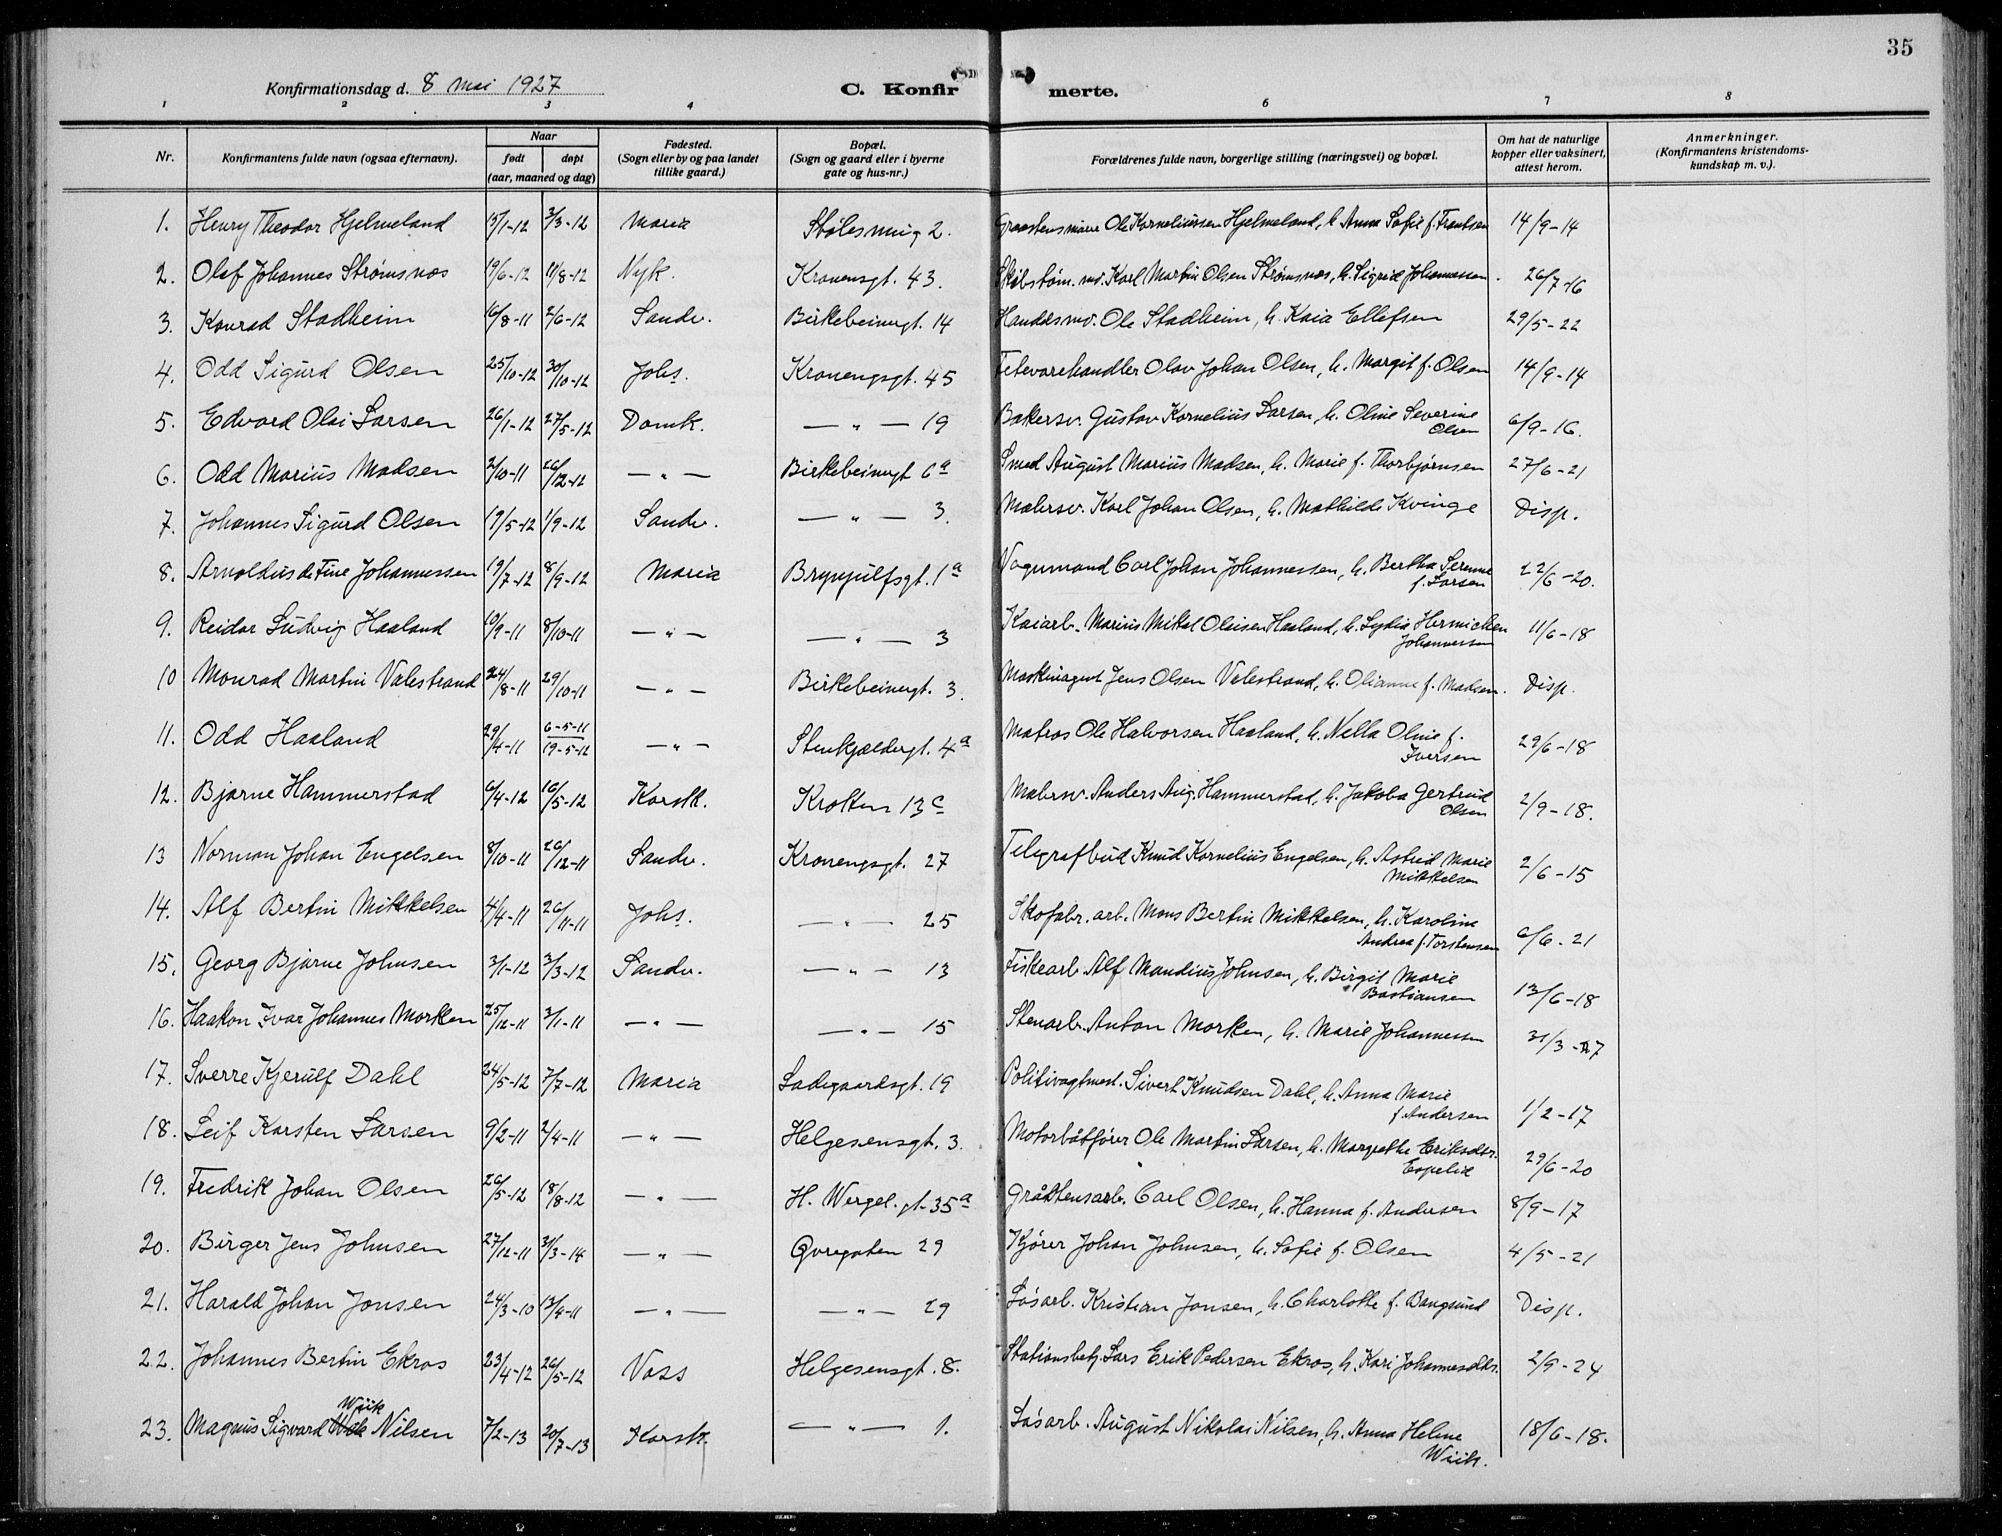 35
Konfirmationsdag d. 8 mai 1927
C. Konfirmerte.
1 2 3 4 6 7 8
Nr. Konfirmantens fulde navn (ogsaa efternavn). Naar født døpt (aar, maaned og dag) Fødested. (Sogn eller by og paa landet tillike gaard.) Bopæl. (Sogn og gaard eller i byerne gate og hus-nr.) Forældrenes fulde navn, borgerlige stilling (næringsvei) og bopæl. Om hat de naturlige kopper eller vaksinert, attest herom. Anmerkninger. (Konfirmantens kristendomskundskap m. v.).
1. Henry Theodor Hjelmeland 15/1-12 3/3-12 Maria Stølesmug 2. Ole Korneliussen Hjelmeland, h. Anna Sofie f. Frantsen 14/9-14
2. Olaf Johannes Strømsnes 19/6-12 11/8-12 Nyk. Kronengsgt. 43. Karl Martin Olsen Strømsnes, h. Sigrid Johannessen. 26/7-16
3. Konrad Stadheim 16/8-11 2/6-12 Sandv. Birkebeinergt. 14 Handelsmd. Ole Stadheim, h. Kaia Ellefsen 29/5-22
4. Odd Sigurd Olsen 25/10-12 30/10-12 Johs. Kronengsgt. 45 Fetevarehandler Olav Johan Olsen, h. Margit f. Olsen 14/9-14
5. Edvard Olai Larsen 26/1-12 27/5-12 Domk. — " — 19 Bakersv. Gustav Kornelius Larsen, h. Oline Severine Olsen 6/9-16.
6. Odd Marius Madsen 2/10-11 26/12-12 — " — Birkebeinergt 6a Smed August Marius Madsen, h. Marie f. Thorbjørnsen 27/6-21
7. Johannes Sigurd Olsen 19/5-12 1/9-12 Sandv. — " — 3. Malersv. Karl Johan Olsen, h. Mathilde Kvinge Disp.
8. Arnoldus de Fine Johannessen 19/7-12 8/9-12 Maria Brynjulfsgt. 1a Vognmand Carl Johan Johannessen, h. Bertha Serenne f. Larsen 22/6-20.
9. Reidar Ludvig Haaland 10/9-11 8/10-11 — " — — " — 3 Kaiarb. Marius Mikal Olaisen Haaland, h. Lydia Hermichen Johannessen 11/6-18
10 Monrad Martin Valestrand 24/8-11 29/10-11 — " — Birkebeinergt. 3. Maskinagent Jens Olsen Valestrand, h. Olianne f. Madsen. Disp.
11. Odd Haaland 29/4-11 6-5-11 19-5-12 — " — Stenkjeldergt. 4a Matros Ole Halvorsen Haaland, h. Nella Oline f. Iversen 29/6-18
12. Bjarne Hammerstad 6/4-12 16/5-12 Korsk. Krotten 13c Malersv. Anders Aug. Hammerstad, h. Jakoba Gertrud Olsen 2/9-18.
13 Norman Johan Engelsen 8/10-11 26/12-11 Sandv. Kronengsgt. 27 Telegrafbud Knud Kornelius Engelsen, h. Astrid Marie Mikkelsen 2/6-15
14. Alf Bertin Mikkelsen 4/4-11 26/11-11 Johs. — " — 25 Skofabr. arb. Mons Bertin Mikkelsen, h. Karoline Andrea f. Torstensen 6/6-21
15. Georg Bjarne Johnsen 3/1-12 3/3-12 Sandv. — " — 13 Fiskearb. Alf Mandius Johnsen, h. Birgit Marie Bastiansen 13/6-18
16. Haakon Ivar Johannes Morken 25/12-11 3/1-11 — " — — " — 15 Stenarb. Anton Morken, h. Marie Johannessen 31/3-27
17. Sverre Kjerulf Dahl 24/5-12 7/7-12 Maria Ladegaardsgt. 19 Politivagtmest. Sivert Knudsen Dahl, h. Anna Marie f. Andersen 1/2-17
18. Leif Karsten Larsen 9/2-11 2/4-11 — " — Helgesensgt. 3. Motorbåtfører Ole Martin Larsen, h. Margrethe Eriksdtr. Espelid 29/6-20
19. Fredrik Johan Olsen 26/5-12 18/8-12 — " — H. Wergel. gt. 35a Gråstensarb. Carl Olsen, h. Hanna f. Andersen 8/9-17
20. Birger Jens Johnsen 27/12-11 31/3-14 — " — Øvregaten 29 Kjører Johan Johnsen, h. Sofie f. Olsen 4/5-21
21. Harald Johan Jonsen 24/3-10 13/4-11 — " — — " — 29 Løsarb. Kristian Jonsen, h. Charlotte f. Bangsund Disp.
22. Johannes Bertin Ekros 23/4-12 26/5-12 Voss Helgesensgt. 8. Stationsbetj. Lars Erik Pedersen Ekros, h. Kari Johannesdtr. 2/9-24
23. Magnus Sigvard Wiik Nilsen 7/2-13 20/7-13 Korsk. — " — 1. Løsarb. August Nikolai Nilsen, h. Anna Helene Wiik. 18/6-18.